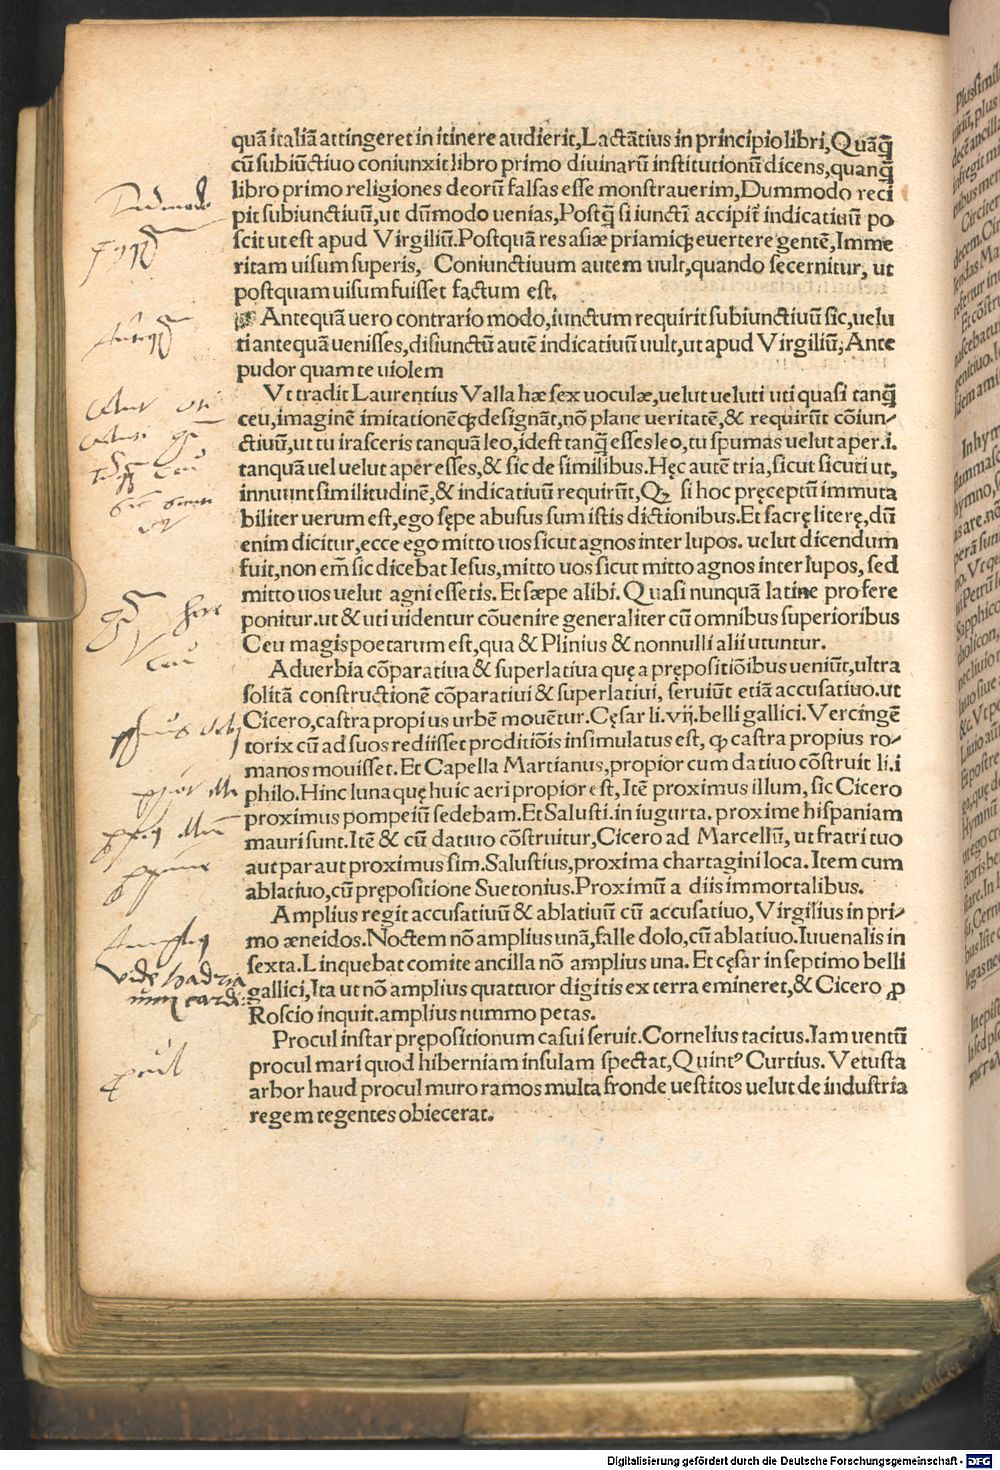 quā italiā attingeret in itinere audierit, Lactātius in principio libri, Quāꝙ̄
cū subiūctiuo coniunxit libro primo diuinarū institutionū dicens, quanꝙ̄
libro primo religiones deorū falsas esse monstrauerim, Dummodo reci
pit subiunctiuū, ut dūmodo uenias, Postꝙ̄ si iunctī accipit̄ indicatiuū po
scit ut est apud Virgiliū. Postquā res asiæ priamiqꝫ euertere gentē, Imme
ritam uisum superis, Coniunctiuum autem uult, quando secernitur, ut
postquam uisum fuisset factum est.
Antequā uero contrario modo, iunctum requirit subiunctiuū sic, uelu
ti antequā uenisses, disiunctū autē indicatiuū uult, ut apud Virgiliū, Ante
pudor quam te uiolem
Vt tradit Laurentius Valla hæ sex uoculæ, uelut ueluti uti quasi tanꝙ̄
ceu, imaginē imitationēqꝫ designāt, nō plane ueritatē, & requirūt cōiun⸗
ctiuū, ut tu irasceris tanquā leo, idest tanꝙ̄ esses leo, tu spumas uelut aper .i.
tanquā uel uelut aper esses, & sic de similibus. Hęc autē tria, sicut sicuti ut,
innuunt similitudinē, & indicatiuū requirūt, Qꝫ si hoc pręceptū immuta
biliter uerum est, ego sępe abusus sum istis dictionibus. Et sacrę literę, dū
enim dicitur, ecce ego mitto uos sicut agnos inter lupos. uelut dicendum
fuit, non em̄ sic dicebat Iesus, mitto uos sicut mitto agnos inter lupos, sed
mitto uos uelut agni essetis. Et sæpe alibi. Quasi nunquā latine pro fere
ponitur. ut & uti uidentur cōuenire generaliter cū omnibus superioribus
Ceu magis poetarum est, qua & Plinius & nonnulli alii utuntur.
Aduerbia cōparatiua & superlatiua quę a prępositiōibus ueniūt, ultra
solitā constructionē cōparatiui & superlatiui, seruiūt etiā accusatiuo. ut
Cicero, castra propius urbē mouētur. Cęsar li. vij. belli gallici. Vercingē
torix cū ad suos rediisset proditiōis insimulatus est, ꝙ castra propius ro⸗
manos mouisset. Et Capella Martianus, propior cum datiuo cōstruit li. i
philo. Hinc luna quę huic aeri propior est, Itē proximus illum, sic Cicero
proximus pompeiū sedebam. Et Salusti. in iugurta. proxime hispaniam
mauri sunt. Itē & cū datiuo cōstruitur, Cicero ad Marcellū, ut fratri tuo
aut par aut proximus sim. Salustius, proxima chartagini loca. Item cum
ablatiuo, cū prępositione Suetonius. Proximū a diis immortalibus.
Amplius regit accusatiuū & ablatiuū cū accusatiuo, Virgilius in pri⸗
mo æneidos. Noctem nō amplius unā, falle dolo, cū ablatiuo. Iuuenalis in
sexta. Linquebat comite ancilla nō amplius una. Et cęsar in septimo belli
gallici, Ita ut nō amplius quattuor digitis ex terra emineret, & Cicero ꝓ
Roscio inquit. amplius nummo petas.
Procul instar prępositionum casui seruit. Cornelius tacitus. Iam uentū
procul mari quod hiberniam insulam spectat, Quintꝰ Curtius. Vetusta
arbor haud procul muro ramos multa fronde uestitos uelut de industria
regem tegentes obiecerat.
Digitalisierung gefördert durch die Deutsche Forschungsgemeinschaft - DFG